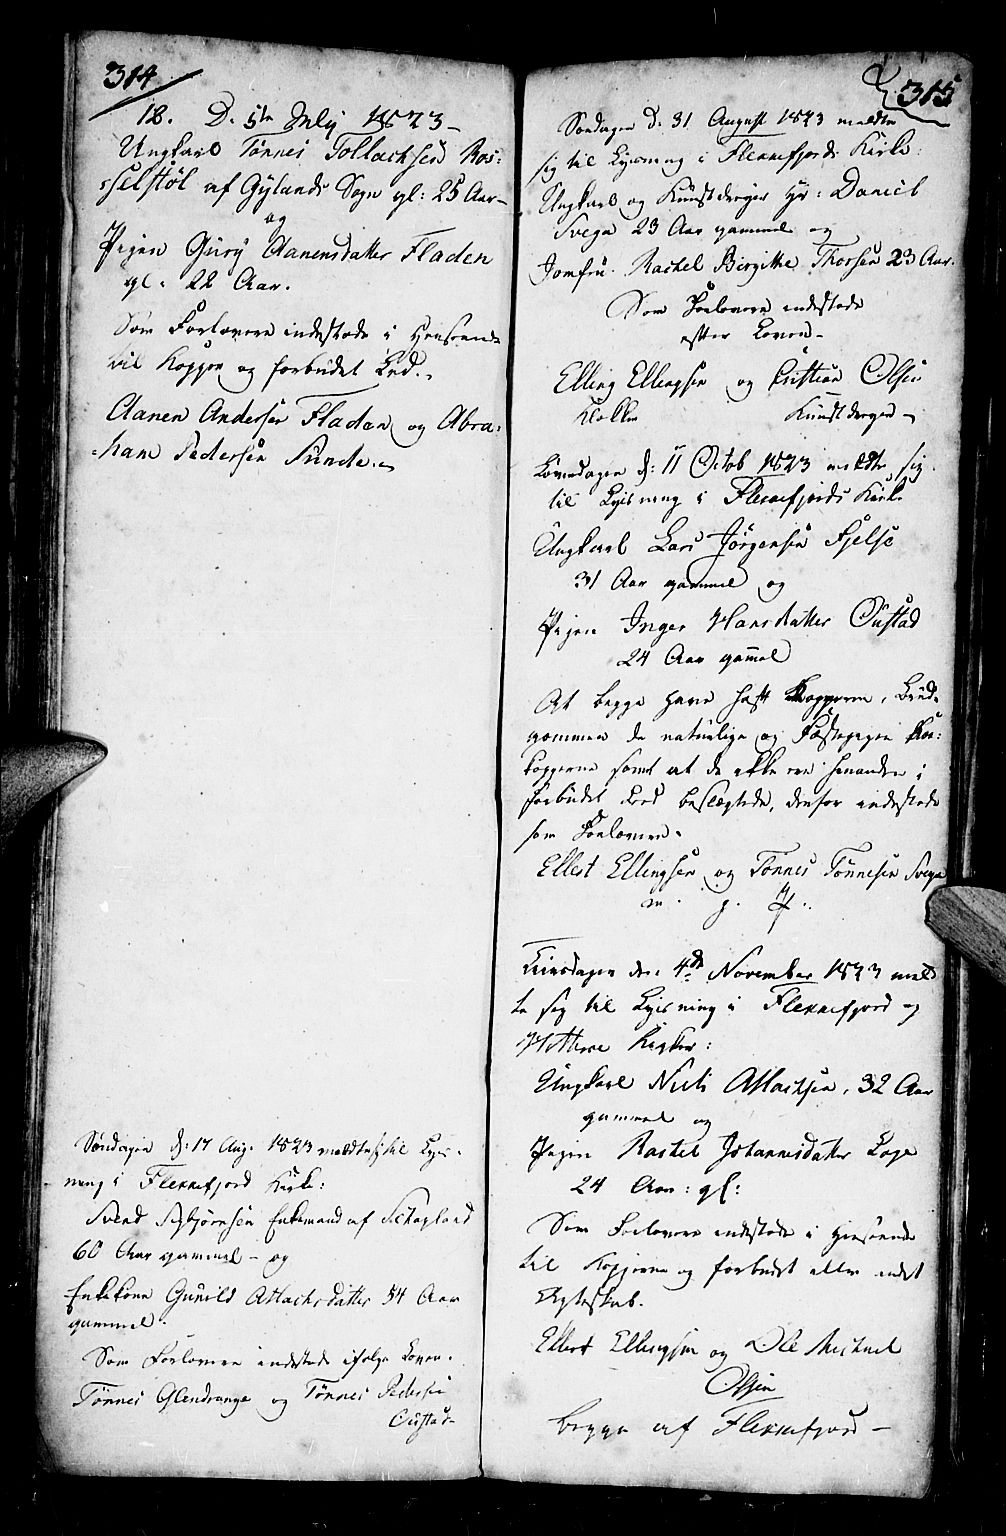 314
12. D. 5te July 1823 -
Ungkarl Tønnes Tollachsen Ros:
:selstøl af Gylands Sogn gl: 25 Aar -
og
Pigen Gury Aanensdatter Fladen
gl. 22 Aar.
Som Forlovere indestode i Henseende
til Kopper og forbudet Led.
Aanen Andersen Fladan og Abra:
:ham Pedersen Sunde.
Søndagen d: 17 Aug. 1823 meldte sig til Lys-
ning i Flekkefjord Kirke:
Svend Asbjørnsen Enkemand af
60 Aar gammel - og
Enkekone Gunild Atlachsdatter 54 Aar
gammel.
Som Forlovere indestode ifølge Loven.
Tønnes Glendrange og Tønnes Pedersen
Oustad
315
Søndagen d. 31 August 1823 meldte
sig til Lysning i Flekkefjords Kirke:
Ungkarl og Kunstdreyer Hr: Daniel
Svega 23 Aar gammel og
Jomfru Rachel Birgitte Thorsen 23 Aar.
Som Forlovere indestode
efter Loven -
Elling Ellingsen og Cristian Olsen
Kunstdreyer -
Løverdagen d: 11 Octob 1823 meldte sig
til Lysning i Flekkefjords Kirke
Ungkarl Lars Jørgensen Fjelse
31 Aar gammel og
Pigen Inger Hansdatter Oustad
24 Aar gammel
At begge have haft Kopperne, Brud-
gommen de naturlige og Fæstepigen Koe:
kopperne samt at de ikke ere hinanden i
forbudet Led beslægtede, derfor indestode
som Forlovere.
Ellert Ellingsen og Tønnes Tønnesen Svega
m. p. P.
Tirsdagen den 4de November 1823 meld
te sig til Lysning i Flekkefjord og
Kirker:
Ungkarl Niels Atlachsen, 32 Aar
gammel og
Pigen Rachel Johannesdatter Loge
24 Aar: gl:
Som Forlovere indestode i Henseende
til Kopperne og forbudet eller andet
Ægteskab.
Ellert Ellingsen og Ole Michael
Olsen
begge af Flekkefjord -